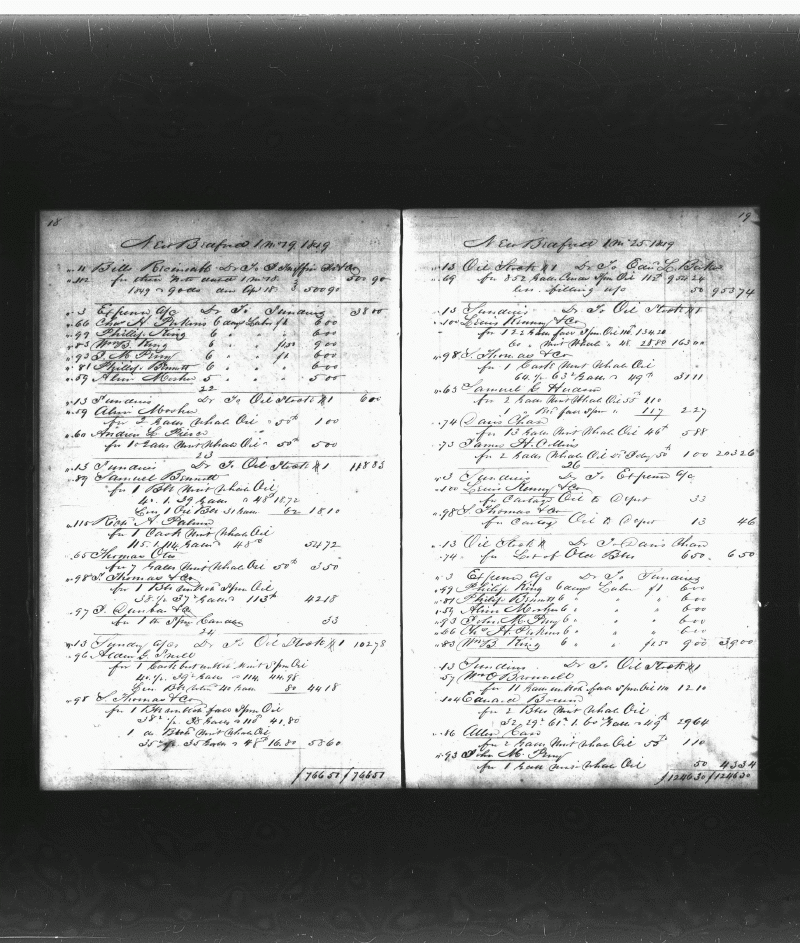 18
New Bedford 1 Mo 19. 1849
11 Bills Receivable Dr To J. &Co
112 for their Note dated 1 Mo 18. 500 90
1849 @ 90ds due Apl 18 500 90
3 Expense a/c Dr To Sundries 38 00
66 Chas H Perkins 6 days Labor $1 6 00
99 Philip King 6 " " " 6 00
83 Wm B. King 6 " " $1 50 9 00
93 J. M Perry 6 " " $1 6 00
81 Philip Bennett 6 " " " 6 00
59 Alvin Mosher 5 " " " 5 00
22
13 Sundries Dr To Oil Stock #1 6 00
59 Alvin Mosher
for 2 Galls Whale Oil 50cts 1 00
60 Andrew L Pierce
for 10 Galls Wint Whale Oil 50cts 5 00
23
13 Sundries Dr To Oil Stock #1 118 83
89 Samuel Bennett
for 1 Bbl Wint Whale Oil
40. 1. 39 Galls @ 48 18.72
Less 1 Oil Bbl 31 Galls 62 18 10
115 A Palmer
for 1 Cask Wint Whale Oil
115. 1. 114 Galls @ 48cts 54 72
65 Thomas Otis
for 7 Galls Wint Whale Oil 50cts 3 50
98 S. Thomas & Co
for 1 Bbl Spm Oil
38 1/2 37 Galls @ 113cts 42 18
97 F. Dunbar & Co
for 1 lb Sper Candles 33
24
13 Sundry a/cs Dr To Oil Stock #1 102 78
96 Snell
for 1 Cask Wint Spm Oil
40. 1/2 39 Galls @ 114. 44.98
Less Bbl 41 Galls 80 44 18
98 S Thomas & Co
for 1 Bbl fall Spm Oil
38 Galls @ 110cts 41.80
1 do Wint Whale Oil
35 Galls @ 48cts 16.80 58 60
$766 51 $766 51
19
New Bedford 1 Mo 25. 1849
13 Oil Stock #1 Dr To Edw L. Baker
69 for Spm Oil 954 24
less filling up 50 953 74
13 Sundries Dr To Oil Stock #1
100 Lewis Kenney & Co
for 122 Galls fall Spm Oil 110 134.20
60 " Wint Whale " 48 28.80 163 00
98 S. Thomas & Co
for 1 Cask Wint Whale Oil
64 1/2 63 Galls @ 49cts 31 11
63 Samuel Hudson
for 2 Galls Wint Whale Oil 55cts 1 10
1 " fall Spm " 1 17 2 27
74 Davis Chase
for 13 Galls Wint Whale Oil 46cts 5 88
73 James H. Collins
for 2 Galls Whale Oil 50cts 1 00 203 26
26
3 Sundries Dr To Expense a/c
100 Lewis Kenney & Co
for Cartage Oil to Depot 33
98 S. Thomas & Co
for Cartage Oil to Depot 13 46
13 Oil Stock # Dr To Davis Chase
74 for Lot of Old Bbls 6 50 6 50
3 Expense a/c Dr To Sundries
99 Philip King 6 days Labor $1 6 00
81 Philip Bennett 6 " " " 6 00
59 Alvin Mosher 6 " " " 6 00
93 John M. Perry 6 " " " 6 00
66 Chas H. Perkins 6 " " " 6 00
83 Wm B. King 6 " " $1 50 9 00 39 00
13 Sundries Dr To Oil Stock #1
57 Wm O Brownell
for 11 Galls fall Spm Oil 110 12 10
104 Edward Bourne
for 2 Bbls Wint Whale Oil
32. 29 1/2 61 1/2 1. 60 1/2 Galls @ 49cts 29 64
16 Allen Case
for 2 Galls Wint Whale Oil 55cts 1 10
93 John M. Perry
for 1 Gall Wint Whale Oil 50 43 34
$1246 30 $1246 30